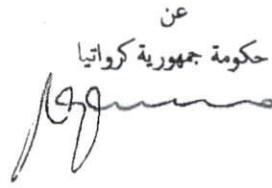 عن
حكومة جمهورية كرواتيا